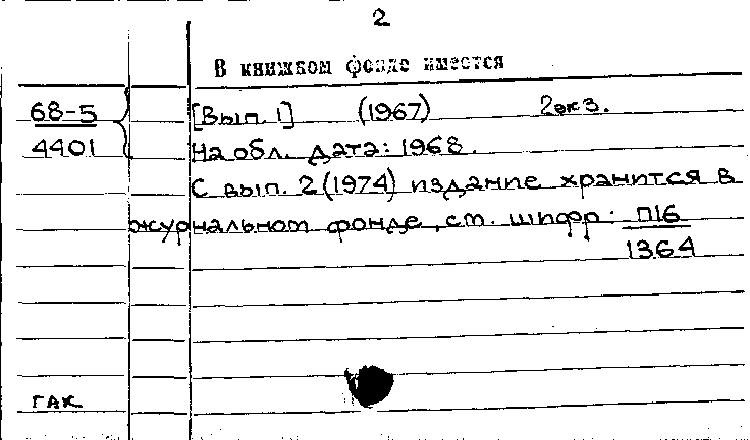 2
В книжном фонде имеется
68-5 [Вып. 1] (1967) 2экз.
4401 На обл. дата: 1968.
С вып. 2 (1974) издание хранится в
журнальном фонде, см. шифр: П16
1364
ГАК